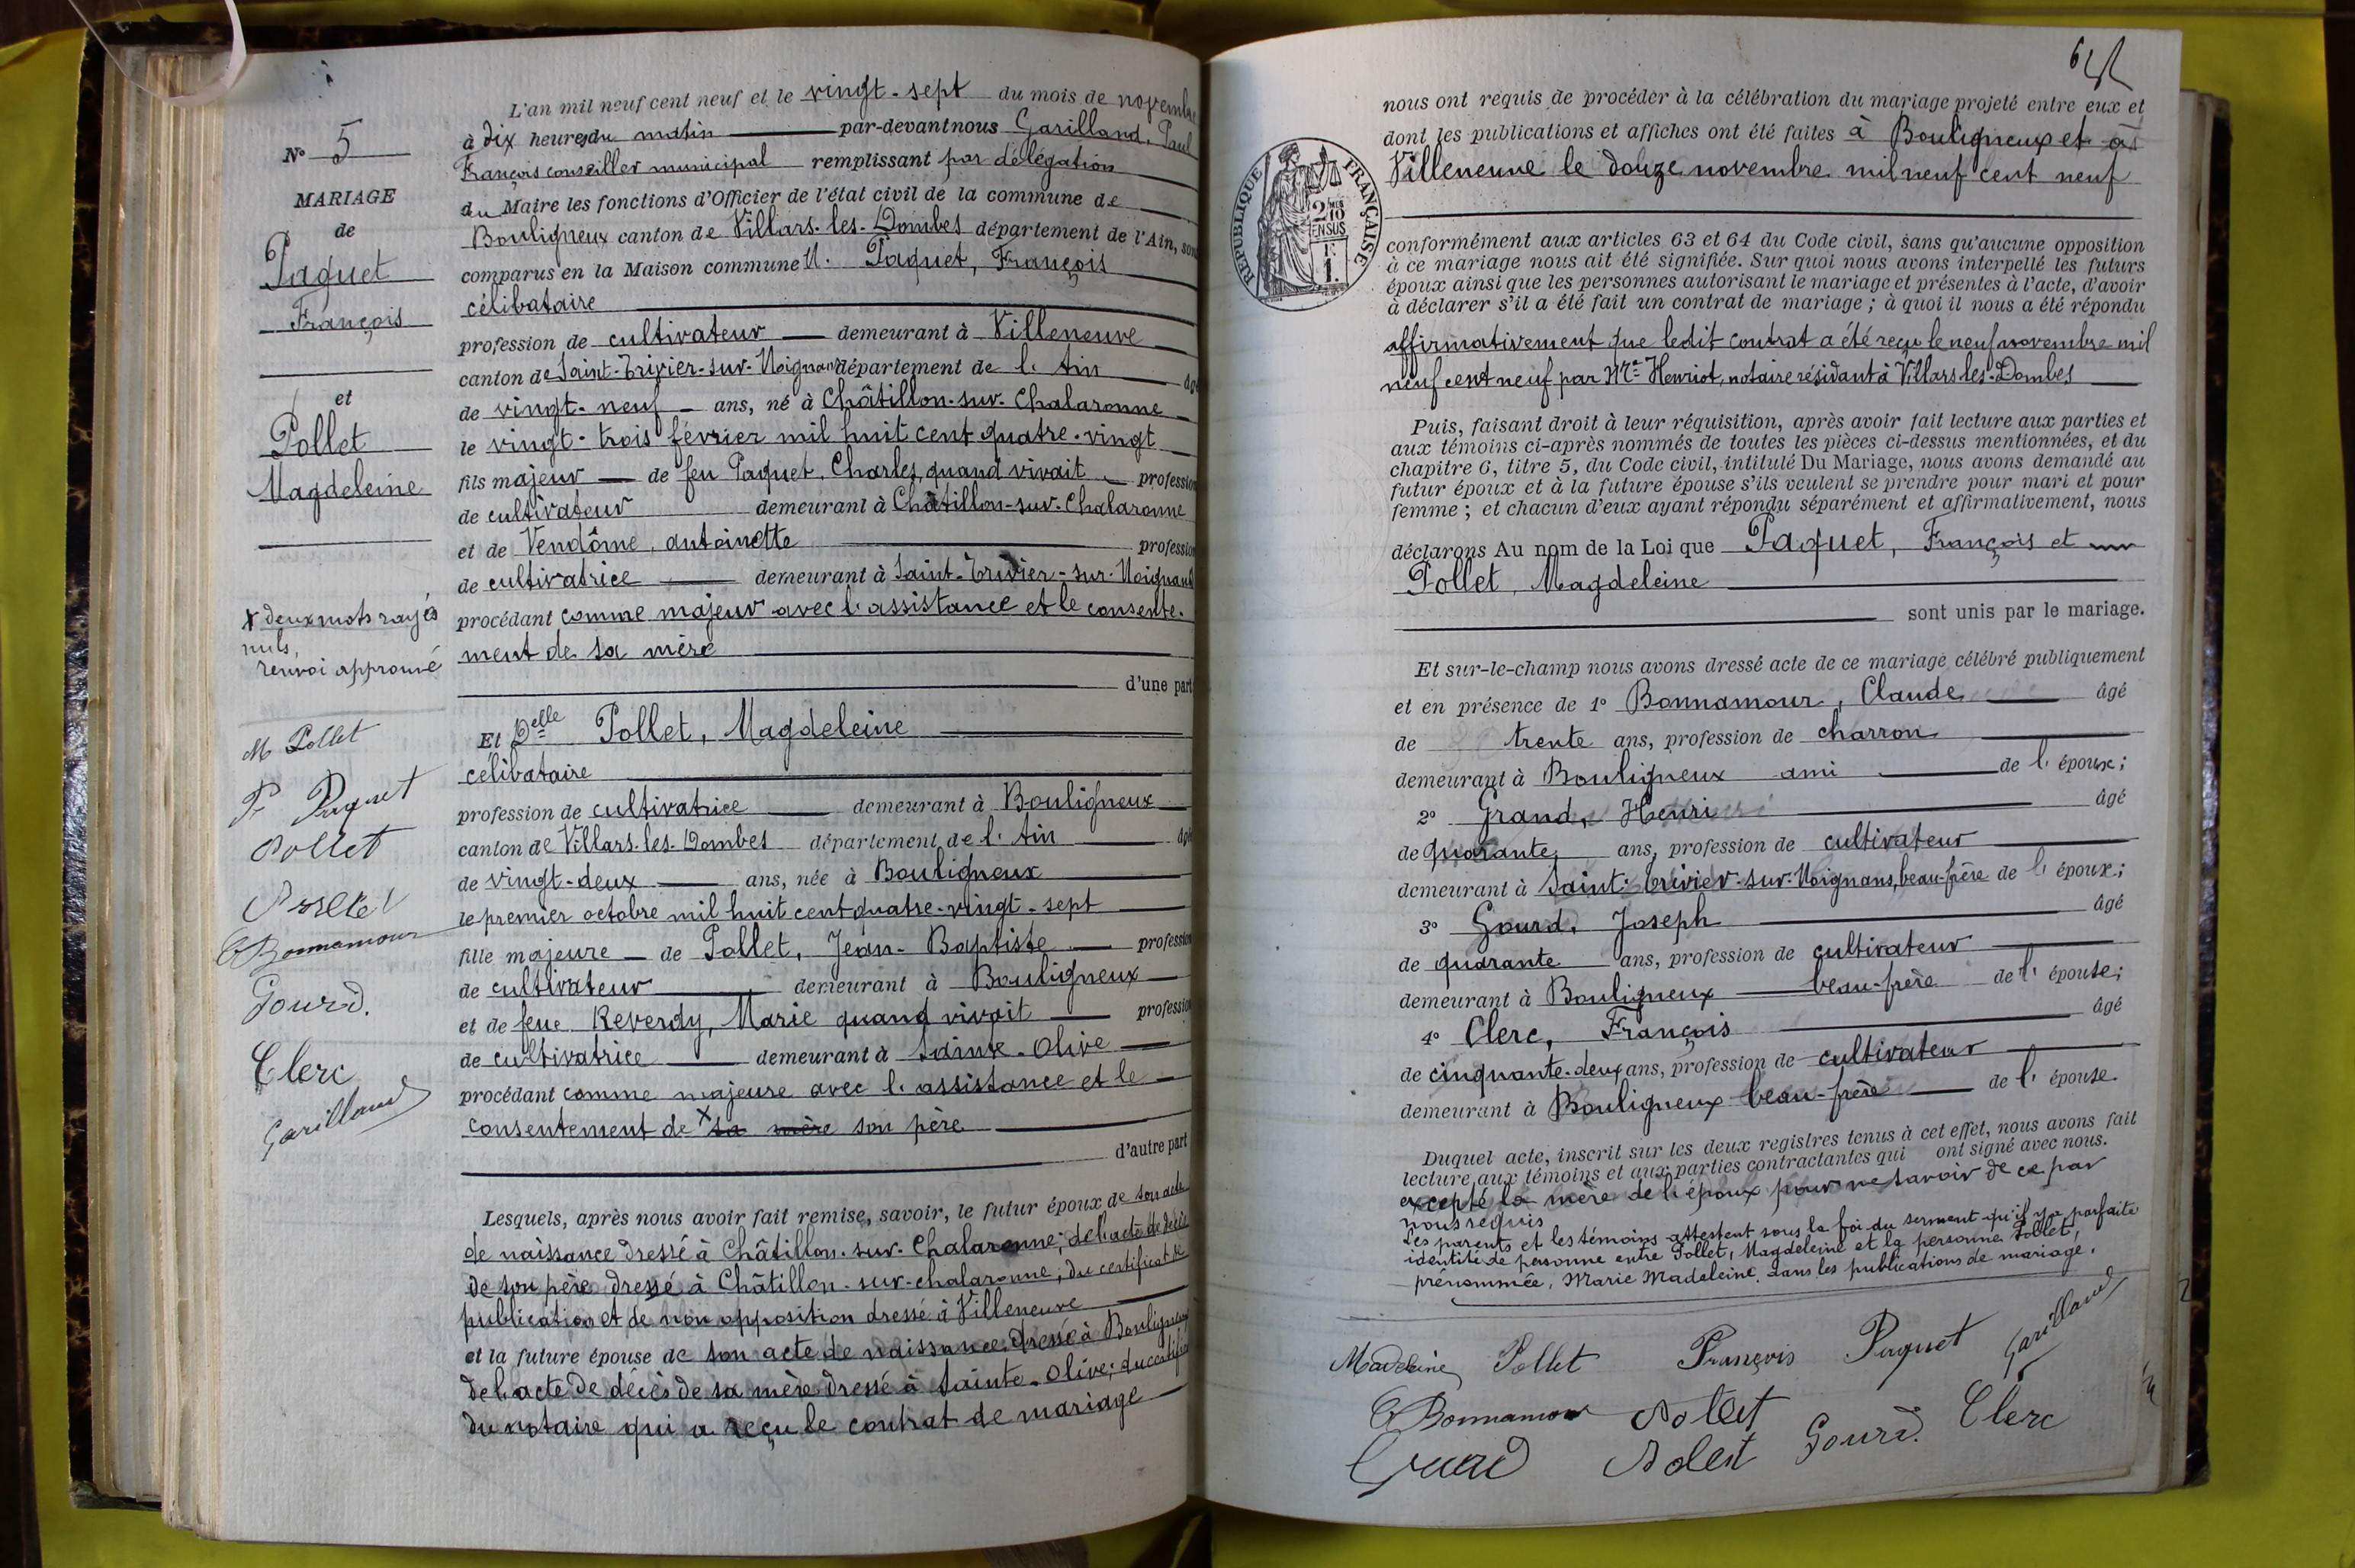 L'an mil neuf cent neuf et le vingt-sept du mois de novembre
N° 5
à dix heures du matin par-devant nous Garilland, Paul
François conseiller municipal remplissant par délégation
MARIAGE
du Maire les fonctions d'Officier de l'état civil de la commune de
de
Bouligneux canton de Villars-les-Dombes département de l'Ain, sont
Paquet
comparus en la Maison commune M. Paquet, François
François
célibataire
profession de cultivateur demeurant à Villeneuve
canton de Saint-Trivier-sur-Moignans département de l'Ain âgé
et
de vingt-neuf ans, né à Châtillon-sur-Chalaronne
Pollet
le vingt-trois février mil huit cent quatre-vingt
Magdeleine
fils majeur de feu Paquet, Charles, quand vivait profession
de cultivateur demeurant à Châtillon-sur-Chalaronne
et de Vendôme, antoinette profession
de cultivatrice demeurant à Saint-Trivier-sur-Moignans
x deux mots rayés
nuls,
renvoi approuvé
procédant comme majeur avec l'assistance et le consente-
ment de sa mère
d'une part
M Pollet
Et Delle Pollet, Magdeleine
célibataire
F Paquet
profession de cultivatrice demeurant à Bouligneux
Pollet
canton de Villars-les-Dombes département de l'Ain âgé
de vingt-deux ans, née à Bouligneux
le premier octobre mil huit cent quatre-vingt-sept
C Bonnamour
fille majeure de Pollet, Jean-Baptiste profession
Gourd.
de cultivateur demeurant à Bouligneux
et de feue Reverdy, Marie quand vivait profession
Clerc
de cultivatrice demeurant à Sainte-Olive
Garilland
procédant comme majeure avec l'assistance et le
consentement de x sa mère son père
d'autre part
Lesquels, après nous avoir fait remise, savoir, le futur époux de son acte
de naissance dressé à Châtillon-sur-Chalaronne; de l'acte de décès
de son père dressé à Châtillon-sur-chalaronne; du certificat de
publication et de non opposition dressé à Villeneuve
et la future épouse de son acte de naissance dressé à Bouligneux
de l'acte de décès de sa mère dressé à Sainte-Olive; du certificat
du notaire qui a reçu le contrat de mariage
nous ont requis de procéder à la célébration du mariage projeté entre eux et
dont les publications et affiches ont été faites à Bouligneux et à
Villeneuve le douze novembre mil neuf cent neuf
REPUBLIQUE FRANÇAISE
conformément aux articles 63 et 64 du Code civil, sans qu'aucune opposition
à ce mariage nous ait été signifiée. Sur quoi nous avons interpellé les futurs
époux ainsi que les personnes autorisant le mariage et présentes à l'acte, d'avoir
à déclarer s'il a été fait un contrat de mariage ; à quoi il nous a été répondu
affirmativement que ledit contrat a été reçu le neuf novembre mil
neuf cent neuf par Me Henriot, notaire résidant à Villars-les-Dombes
Puis, faisant droit à leur réquisition, après avoir fait lecture aux parties et
aux témoins ci-après nommés de toutes les pièces ci-dessus mentionnées, et du
chapitre 6, titre 5, du Code civil, intitulé Du Mariage, nous avons demandé au
futur époux et à la future épouse s'ils veulent se prendre pour mari et pour
femme ; et chacun d'eux ayant répondu séparément et affirmativement, nous
déclarons Au nom de la Loi que Paquet, François et
Pollet, Magdeleine
sont unis par le mariage.
Et sur-le-champ nous avons dressé acte de ce mariage célébré publiquement
et en présence de 1° Bonnamour, Claude âgé
de trente ans, profession de charron
demeurant à Bouligneux ami de l'époux;
2° Grand, Henri âgé
de quarante ans, profession de cultivateur
demeurant à Saint-Trivier-sur-Moignans, beau-frère de l'époux;
3° Gourd, Joseph âgé
de quarante ans, profession de cultivateur
demeurant à Bouligneux beau-frère de l'épouse;
4° Clerc, François âgé
de cinquante-deux ans, profession de cultivateur
demeurant à Bouligneux beau-frère de l'épouse.
Duquel acte, inscrit sur les deux registres tenus à cet effet, nous avons fait
lecture aux témoins et aux parties contractantes qui ont signé avec nous.
excepté la mère de l'époux pour ne savoir de ce par
nous requis
Les parents et les témoins attestent sous la foi du serment qu'il y a parfaite
identité de personne entre Pollet, Magdeleine et la personne Pollet,
prénommée, Marie Madeleine, dans les publications de mariage.
Madeleine Pollet François Paquet Garilland
C Bonnamour Pollet Gourd. Clerc
Grand Pollet